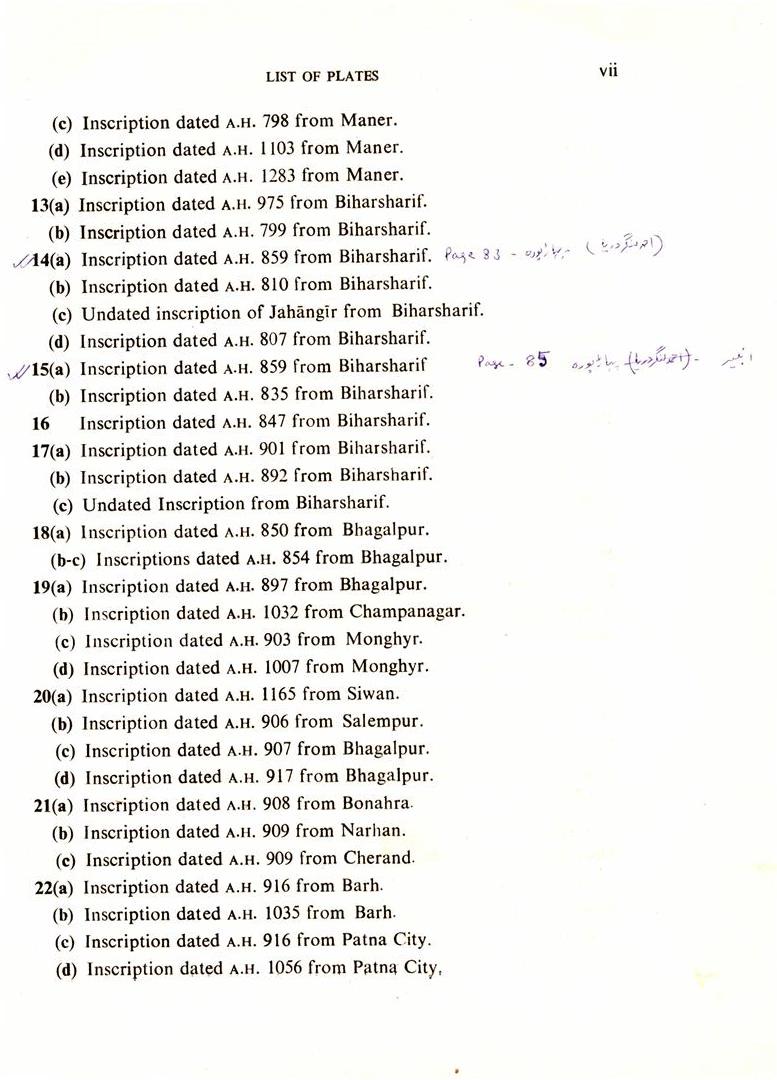 LIST OF PLATES vii
(c) Inscription dated A.H. 798 from Maner.
(d) Inscription dated A.H. 1103 from Maner.
(e) Inscription dated A.H. 1283 from Maner.
13(a) Inscription dated A.H. 975 from Biharsharif.
(b) Inscription dated A.H. 799 from Biharsharif.
14(a) Inscription dated A.H. 859 from Biharsharif. Page 83 -
(b) Inscription dated A.H. 810 from Biharsharif.
(c) Undated inscription of Jahāngīr from Biharsharif.
(d) Inscription dated A.H. 807 from Biharsharif.
15(a) Inscription dated A.H. 859 from Biharsharif Page - 85
(b) Inscription dated A.H. 835 from Biharsharif.
16 Inscription dated A.H. 847 from Biharsharif.
17(a) Inscription dated A.H. 901 from Biharsharif.
(b) Inscription dated A.H. 892 from Biharsharif.
(c) Undated Inscription from Biharsharif.
18(a) Inscription dated A.H. 850 from Bhagalpur.
(b-c) Inscriptions dated A.H. 854 from Bhagalpur.
19(a) Inscription dated A.H. 897 from Bhagalpur.
(b) Inscription dated A.H. 1032 from Champanagar.
(c) Inscription dated A.H. 903 from Monghyr.
(d) Inscription dated A.H. 1007 from Monghyr.
20(a) Inscription dated A.H. 1165 from Siwan.
(b) Inscription dated A.H. 906 from Salempur.
(c) Inscription dated A.H. 907 from Bhagalpur.
(d) Inscription dated A.H. 917 from Bhagalpur.
21(a) Inscription dated A.H. 908 from Bonahra.
(b) Inscription dated A.H. 909 from Narhan.
(c) Inscription dated A.H. 909 from Cherand.
22(a) Inscription dated A.H. 916 from Barh.
(b) Inscription dated A.H. 1035 from Barh.
(c) Inscription dated A.H. 916 from Patna City.
(d) Inscription dated A.H. 1056 from Patna City,